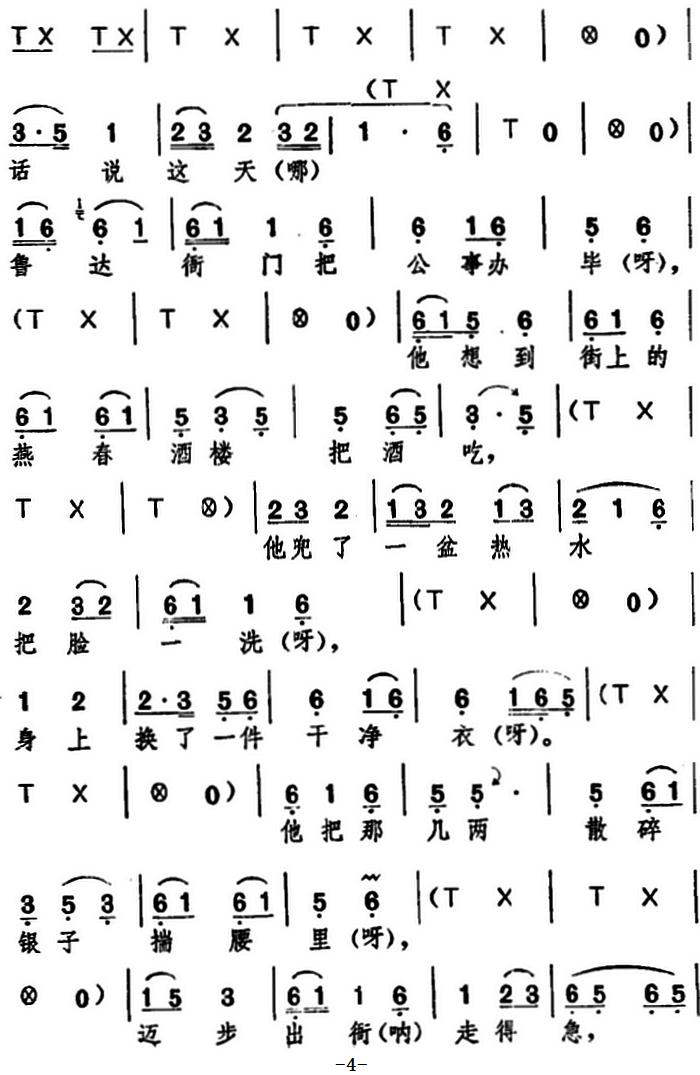 T X T X | T X | T X | T X | ⊗ 0) |
(T X
3·5 1 | 23 2 32 | 1 · 6 | T 0 | ⊗ 0) |
话 说 这 天(哪)
16 6 1 | 61 1 6 | 6 16 | 5 6 |
鲁 达 衙 门 把 公 事办 毕(呀),
(T X | T X | ⊗ 0) | 615 6 | 61 6 |
他 想 到 街上 的
61 61 | 5 3 5 | 5 65 | 3 · 5 | (T X |
燕 春 酒 楼 把 酒 吃,
T X | T ⊗) | 23 2 | 132 13 | 2 1 6 |
他兜 了 一 盆 热 水
2 32 | 61 1 6 | (T X | ⊗ 0) |
把 脸 一 洗(呀),
1 2 | 2·3 56 | 6 16 | 6 165 | (T X |
身 上 换了 一件 干 净 衣(呀)。
T X | ⊗ 0) | 6 1 6 | 5 5 · | 5 61 |
他 把 那 几 两 散 碎
3 5 3 | 61 61 | 5 6 | (T X | T X |
银 子 揣 腰 里(呀),
⊗ 0) | 15 3 | 61 1 6 | 1 23 | 65 65 |
迈 步 出 衙(呐) 走 得 急,
-4-